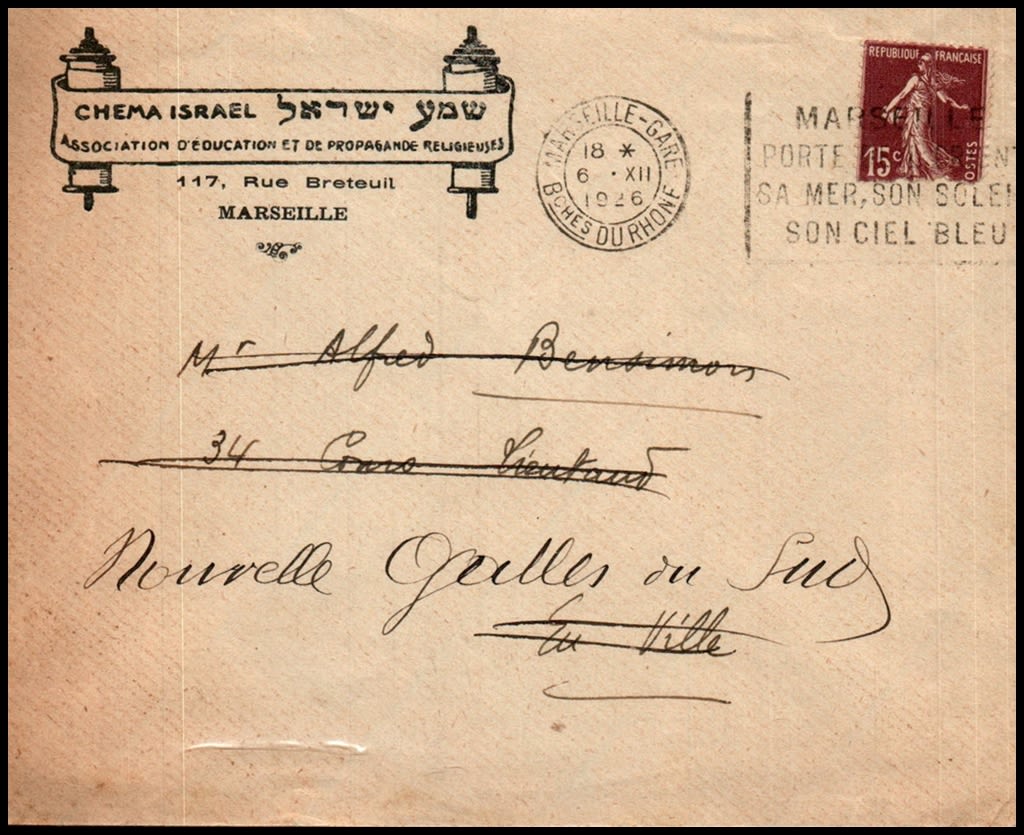 CHEMA ISRAEL שמע ישראל
ASSOCIATION D'ÉDUCATION ET DE PROPAGANDE RELIGIEUSES
117, Rue Breteuil
MARSEILLE
MARSEILLE-GARE
18 *
6 · XII
1926
BCHES DU RHONE
REPUBLIQUE FRANÇAISE
15c
POSTES
MARSEILLE
PORTE
SA MER, SON SOLEI
SON CIEL BLEU
Mr Alfred Bensimon
34 Cours Lieutaud
Nouvelle Galles du Sud
En Ville